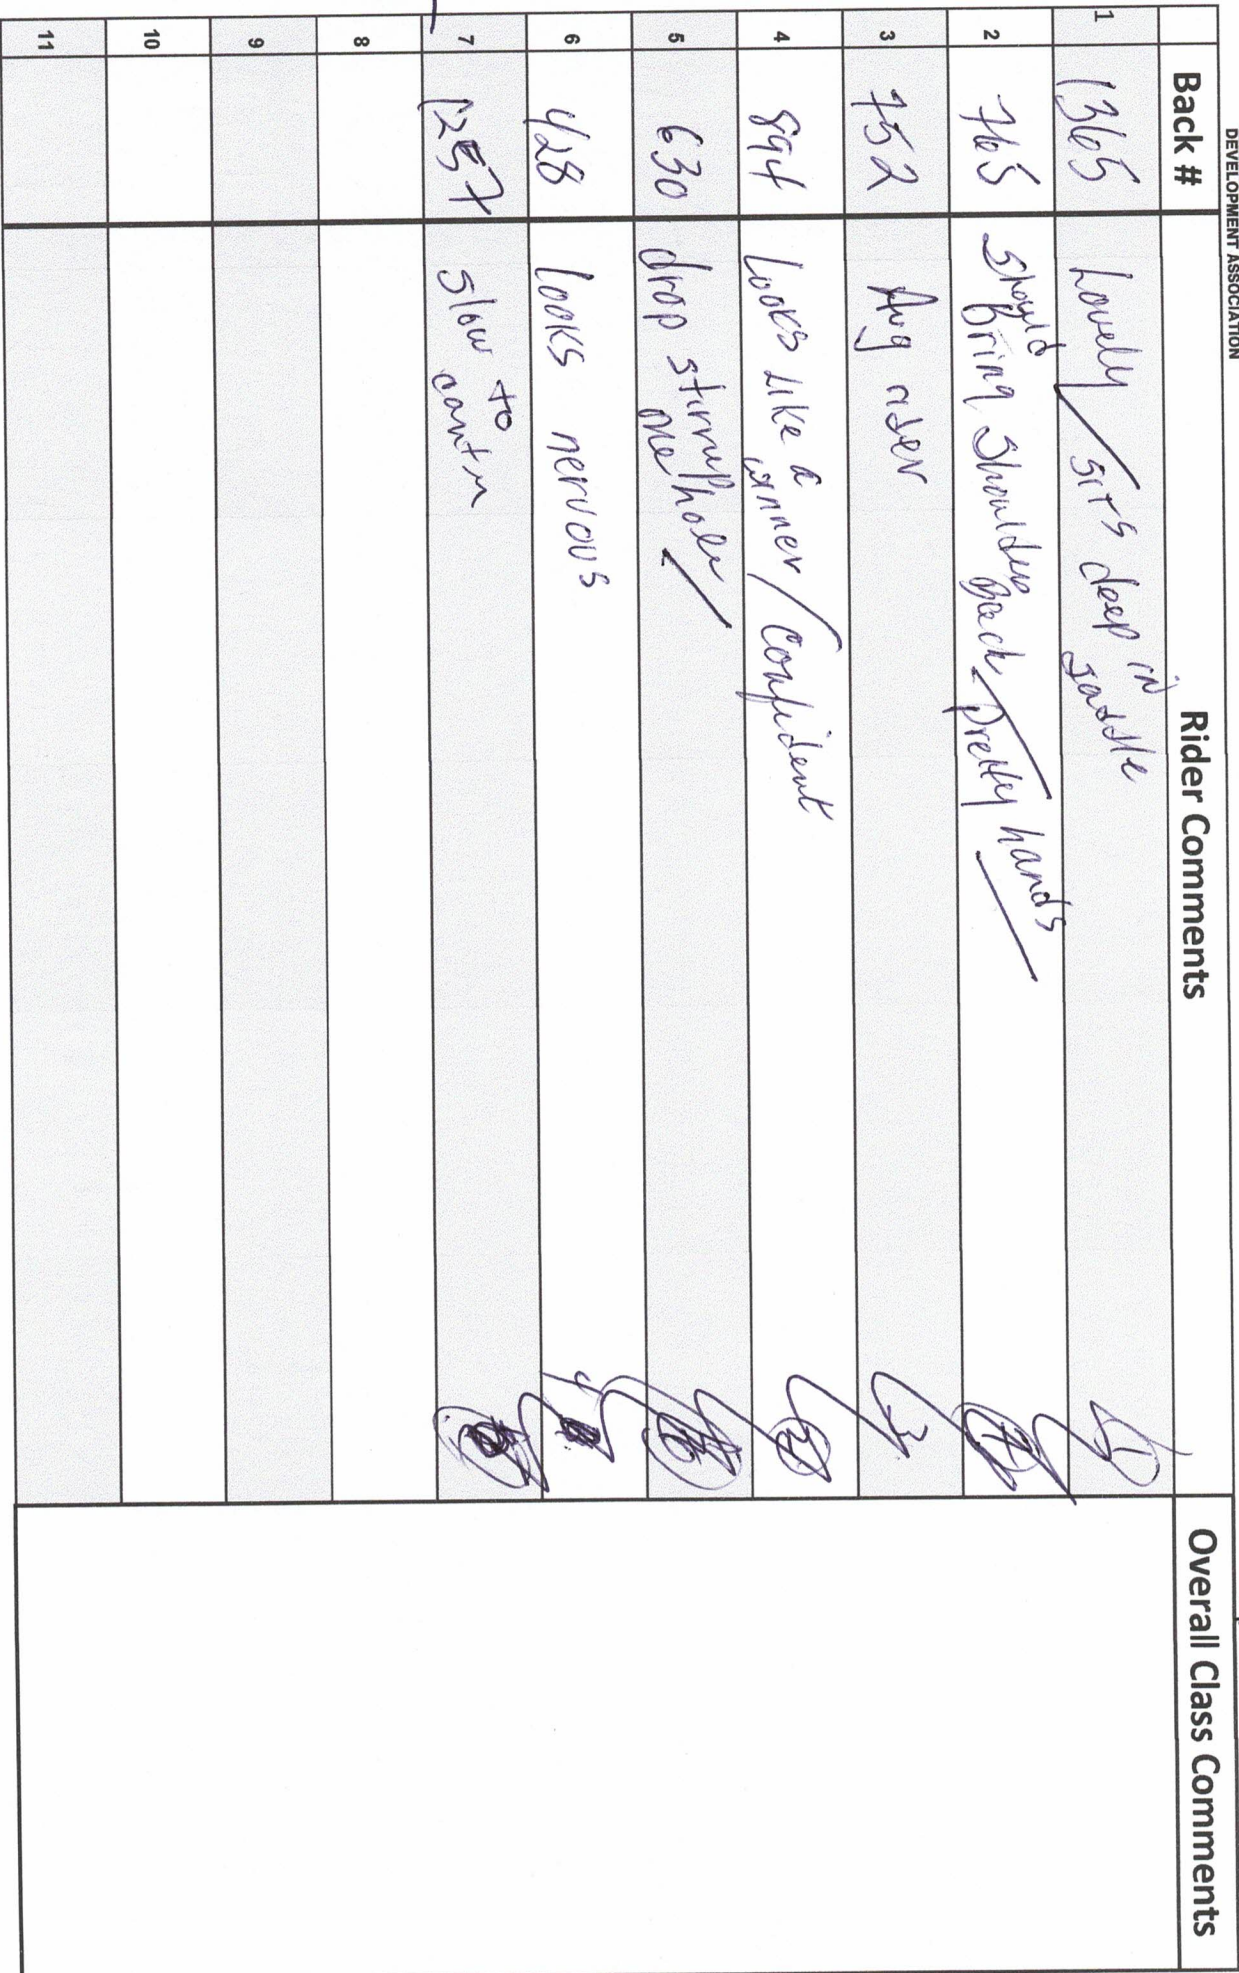 DEVELOPMENT ASSOCIATION
Back # Rider Comments Overall Class Comments
1 1365 Lovely / sits deep in saddle 1
2 765 Should Bring Shoulders Back / Pretty hands
3 752 Avg rider 3
4 894 Looks Like a winner / Confident 2
5 630 drop stirrup one hole
6 428 looks nervous 4
7 1257 slow to canter
8
9
10
11